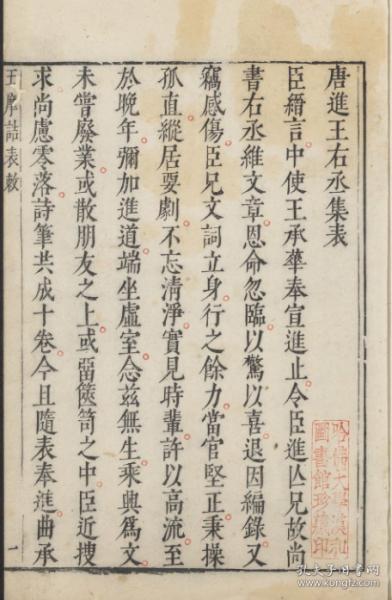 唐進王右丞集表
臣縉言中使王承華奉宣進止令臣進亾兄故尚
書右丞維文章恩命忽臨以驚以喜退因編錄又
竊感傷臣兄文詞立身行之餘力當官堅正秉操
孤直縱居要劇不忘清淨實見時輩許以高流至
於晚年彌加進道端坐虛室念茲無生乘興爲文
未嘗廢業或散朋友之上或畱篋笥之中臣近搜
求尚慮零落詩筆共成十卷今且隨表奉進曲承
王摩詰表敕
一
哈佛大學漢和
圖書館珍藏印
孔夫子旧书网